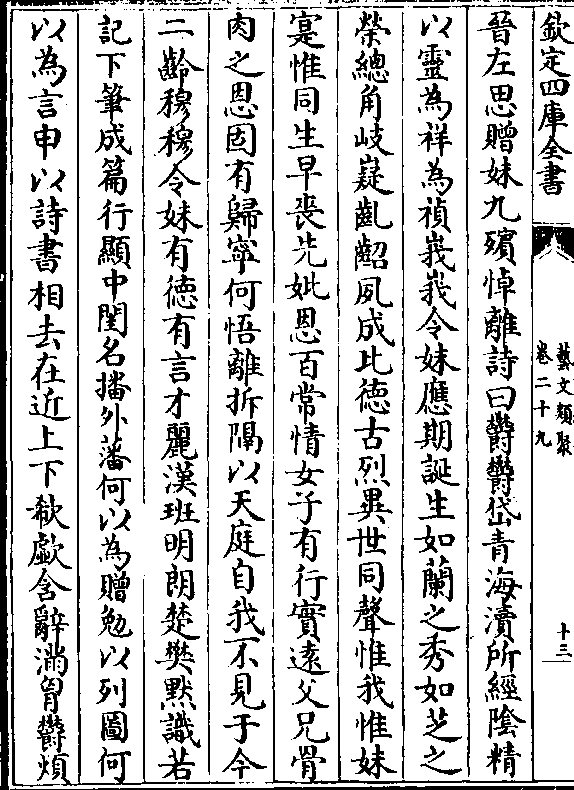 欽定四庫全書
藝文類聚
卷二十九
十三
晉左思贈妹九殯悼離詩曰鬱鬱岱青海瀆所經陰精
以靈為祥為禎峩峩令妹應期誕生如蘭之秀如芝之
榮總角岐嶷齓齠夙成比徳古烈異世同聲惟我惟妹
寔惟同生早喪先妣恩百常情女子有行實逺父兄骨
肉之恩固有歸寧何悟離拆隔以天庭自我不見于今
二齡穆穆令妹有徳有言才麗漢班明朗楚樊黙識若
記下筆成篇行顯中閨名播外藩何以為贈勉以列圖何
以為言申以詩書相去在近上下欷歔含辭滿胷鬱煩